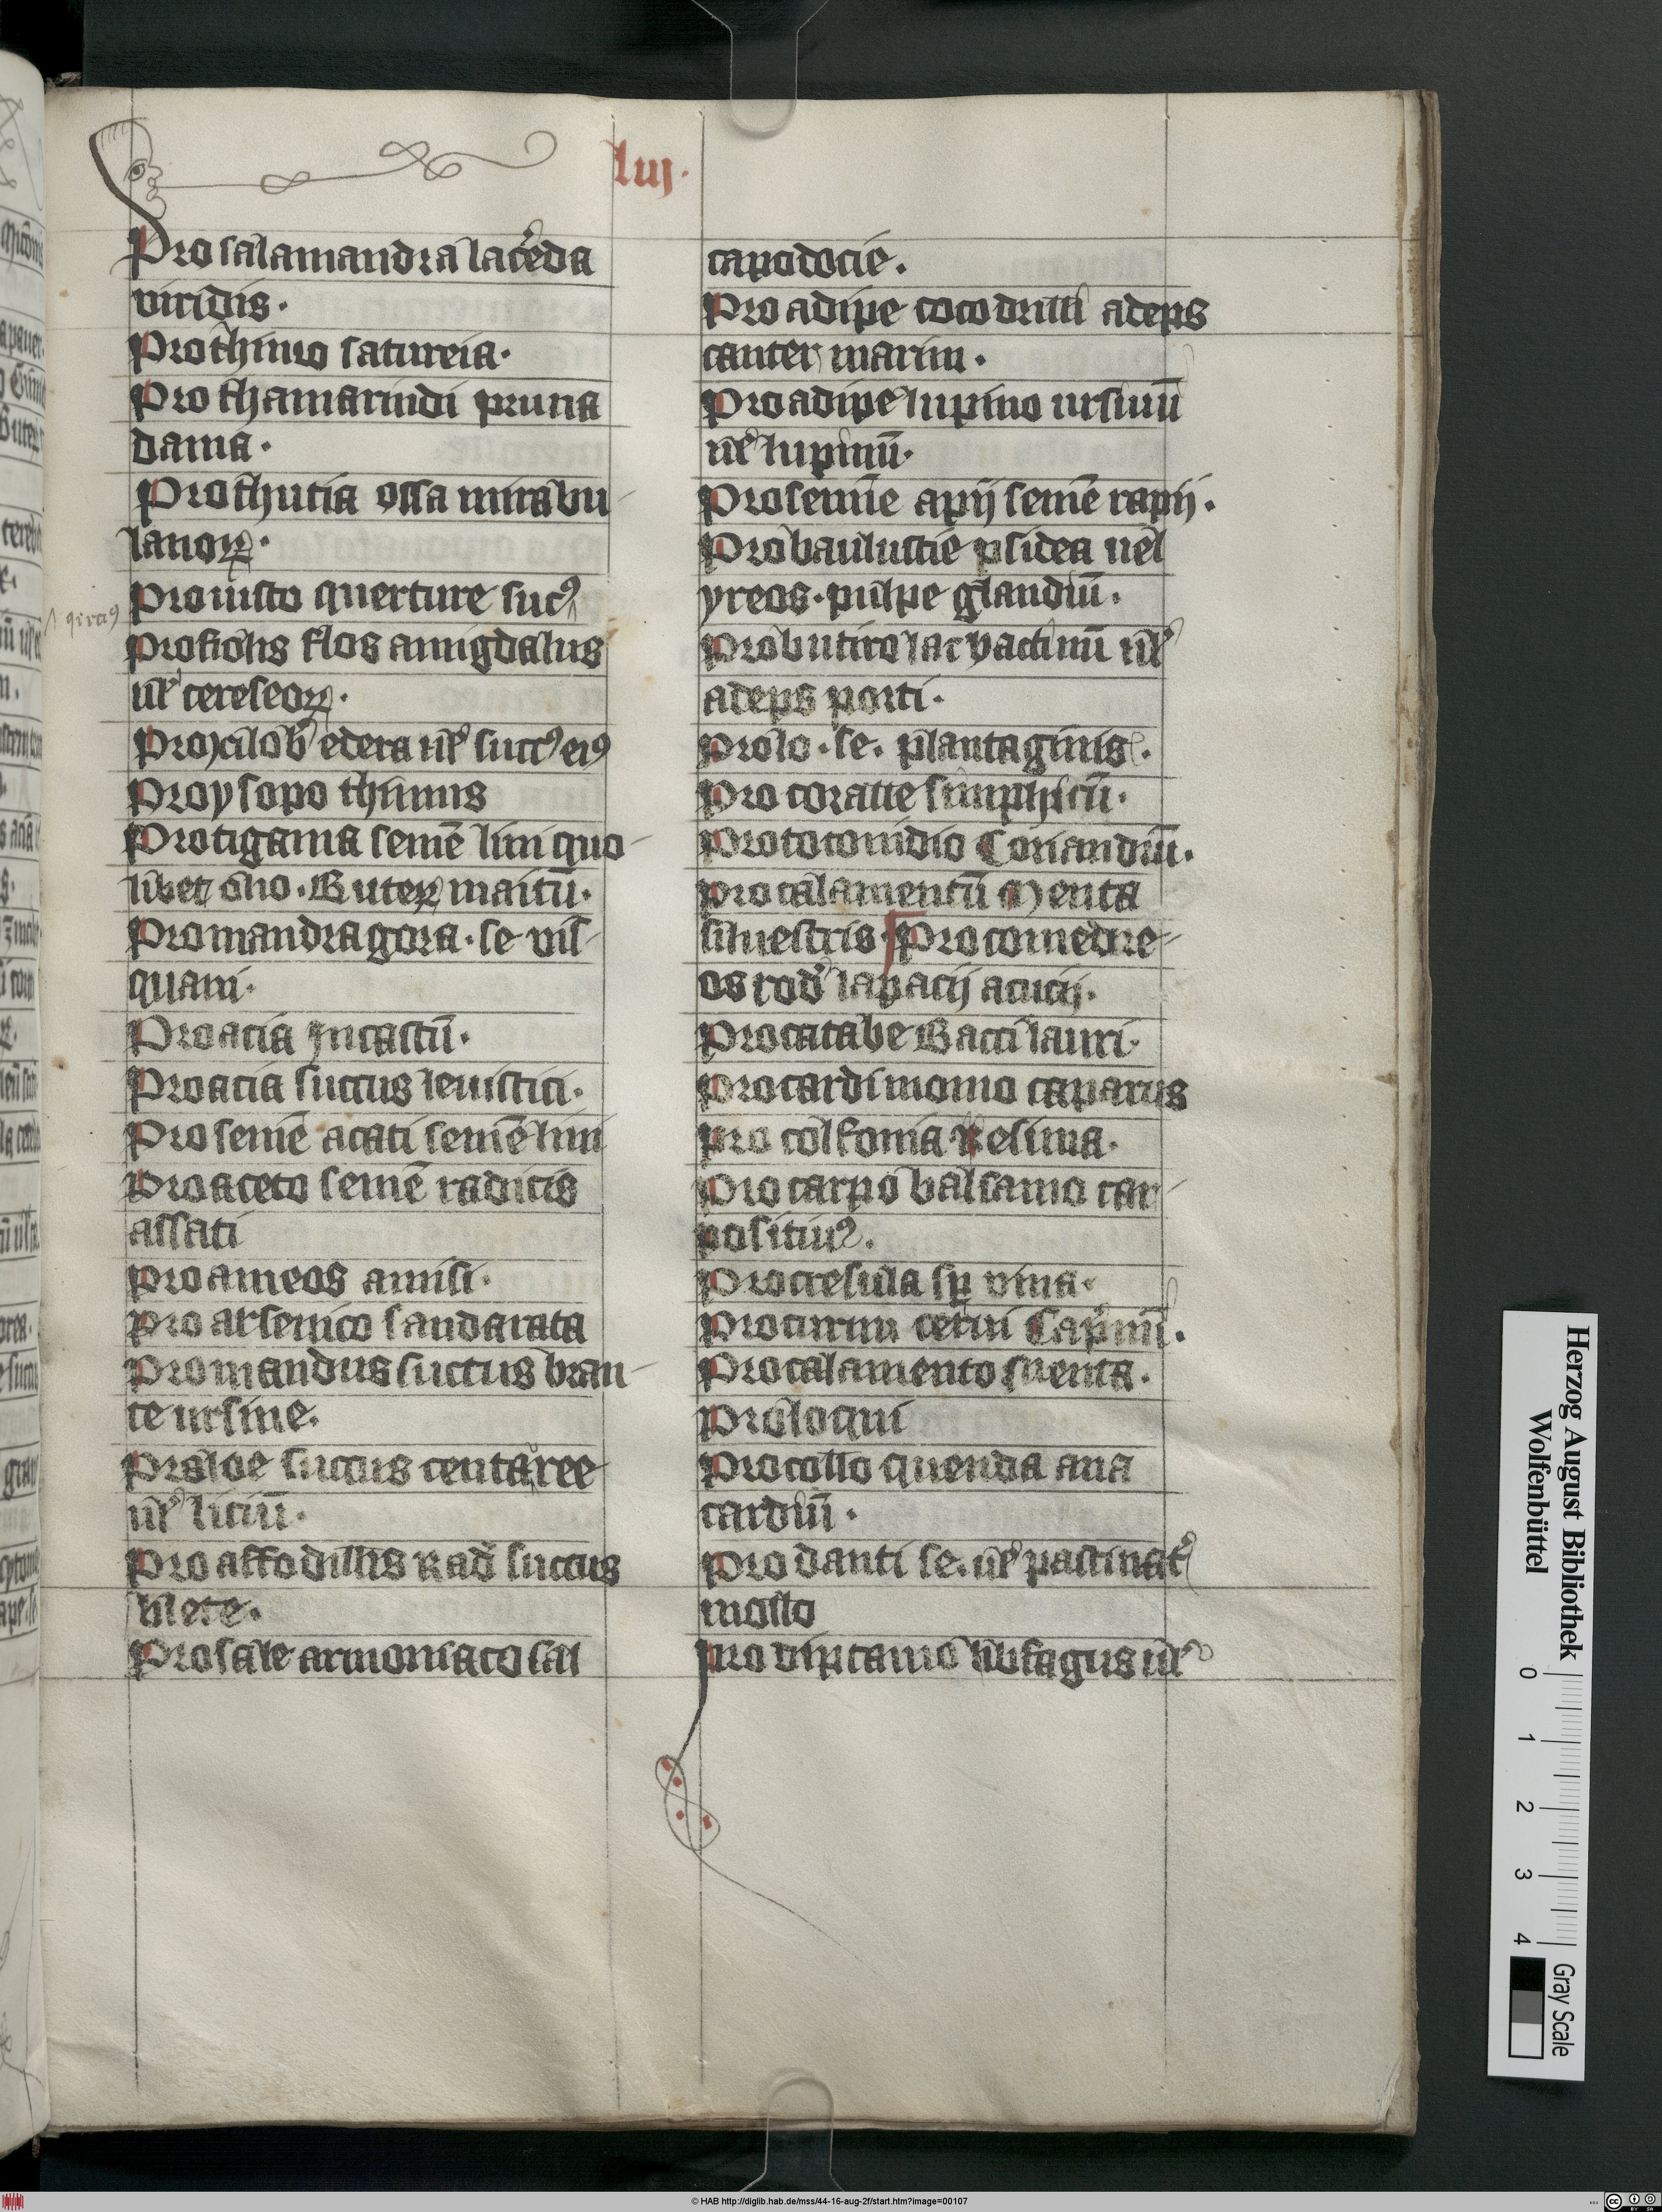 luj.
Pro salamandra lac̾eda
viridis.
Pro thimo satureia.
Pro thamarindi pruna
dama.
Pro thutia ossa mirabu-
lanoꝝ.
Pro uisto querture sucꝰ
qirciꝰ
Pro fiolis flos amigdalus
ul̾ cereseoꝝ.
Pro xilob̾ edera ul̾ succꝰ eiꝰ
Pro ysopo thimus
Pro tigama semē lini quo-
lib̾et om̄o. Buteꝝ maitū.
Pro mandragora. se vis-
quam.
Pro acia Jncastū.
Pro acia succus leuistici.
Pro semē acati semē lini
Pro aceto semē radicis
assati
Pro ameos amisi.
Pro arsenico sandarata
Pro mandus succus bran-
te ursine.
Pro aloe succus centauree
ul̾ liciū.
Pro affodillis Rad̾ succus
blete.
Pro sale armoniaco sal
capodocie.
Pro adipe cocodrilli adeps
cancer marini.
Pro adipe lupino ursinū
ul̾ lupinū.
Pro semīe apij semē rapij.
Pro baulustie psidea uel
yreos. pulpe glandiū.
Pro butiro lac vaccinū ul̾
adeps porci.
Pro lo. se. plantaginis.
Pro coralle simphicū.
Pro toconidio Coriandiū.
Pro calamentū Menta
siluestris. Pro comedre-
os rod̾ lapacij acucij.
Pro catabe Bacci lauri.
Pro cardimomo caparus
Pro colfonia Resina.
Pro carpo balsamo car-
positiuꝰ.
Pro cresula sp̄ vina.
Pro curnu cerui Cap̾inū.
Pro calamento menta.
Pro loqui
Pro collo quenda ana
cardiū.
Pro danti se. ul̾ pastinat̾
mollo
Pro diptamo bibfagus ul̾
Herzog August Bibliothek
Wolfenbüttel
0 1 2 3 4
Gray Scale
© HAB http://diglib.hab.de/mss/44-16-aug-2f/start.htm?image=00107